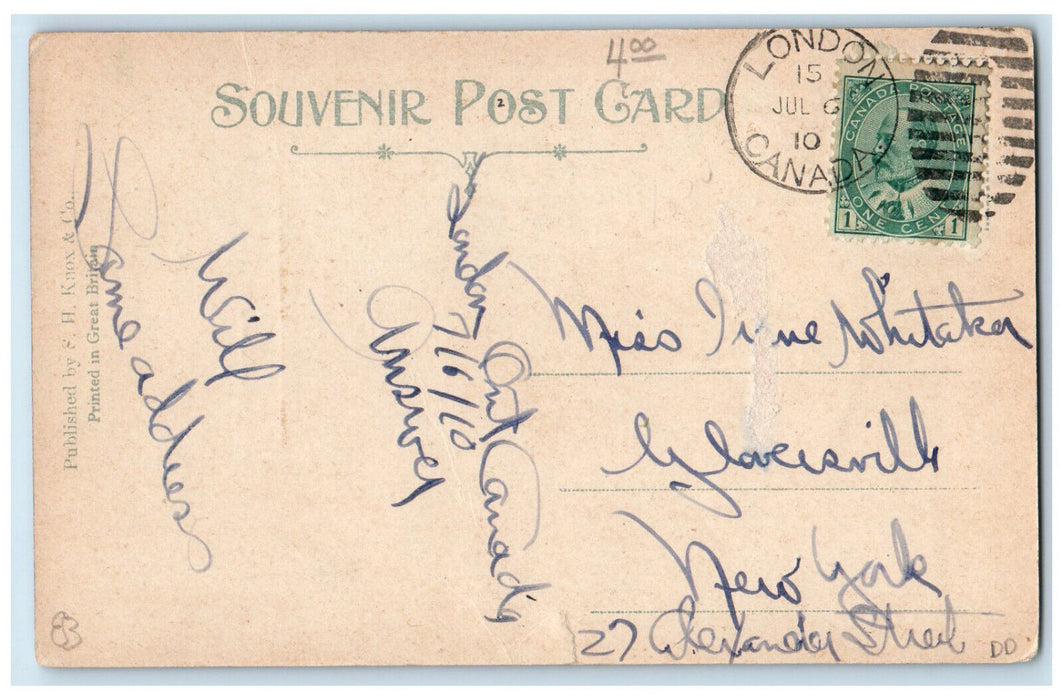 4 00
SOUVENIR POST CARD
2
LONDON
15
JUL 6
10
CANADA
CANADA POSTAGE
1 ONE CENT 1
London Ont Canada
7/6/10
Answer
Will
Same address
Miss Irene Whitaker
Gloversville
New York
27 Alexander Street
DD
Published by S. H. Knox & Co.
Printed in Great Britain